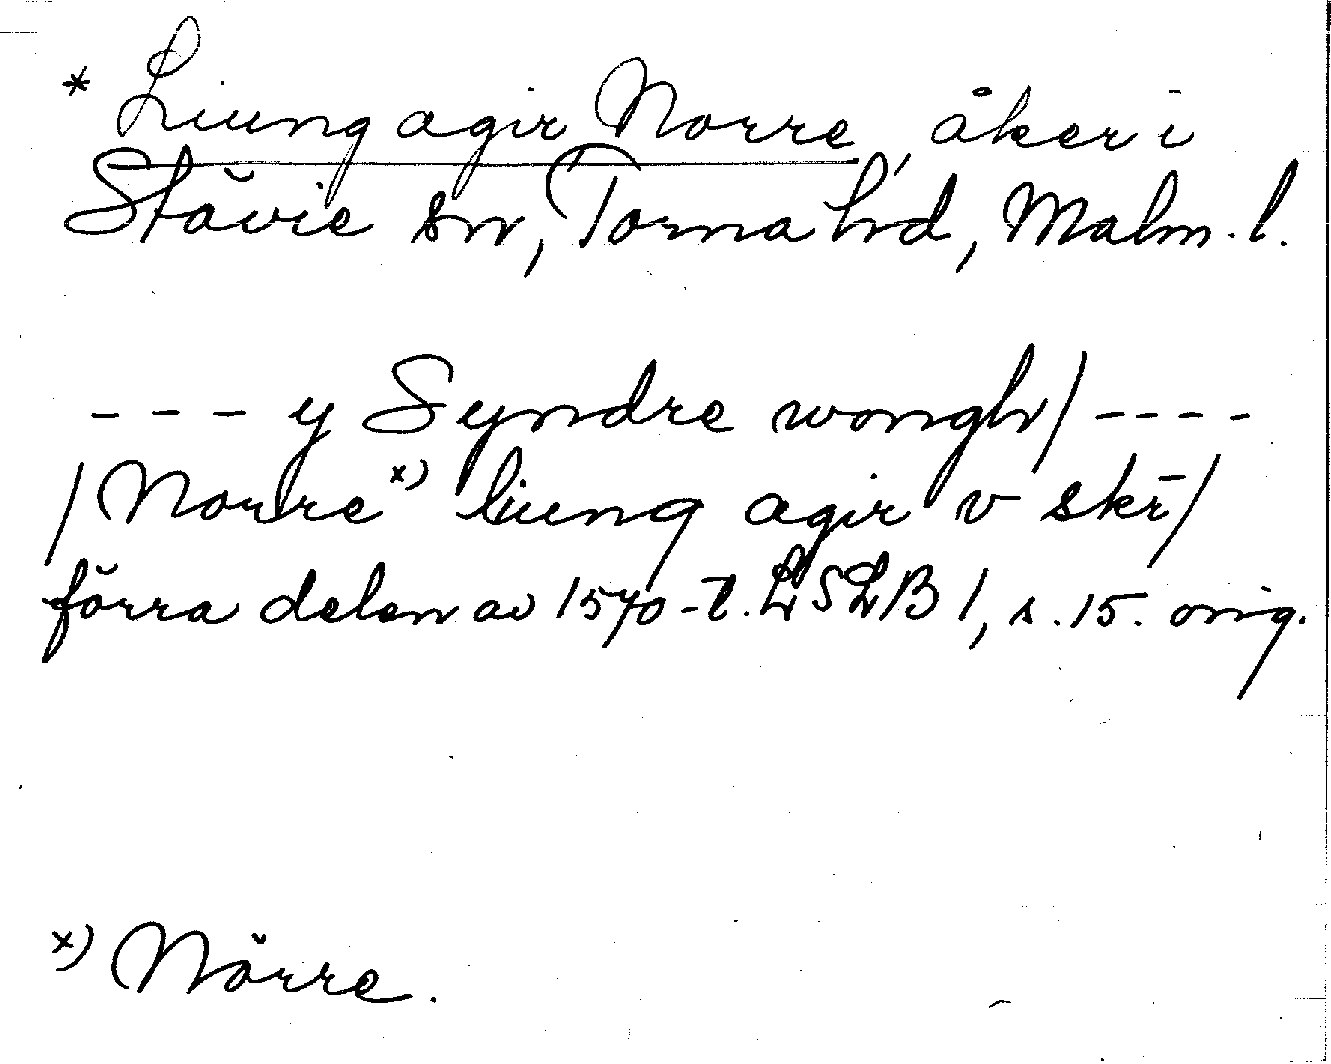 * Liung agir Norre, åker i
Stävie sn, Torna hd, Malm. l.
--- y Syndre wongh/----
/Norre x) liung agir v skī/
förra delen av 1570-t. LSLB 1, s. 15. orig.
x) Nörre.